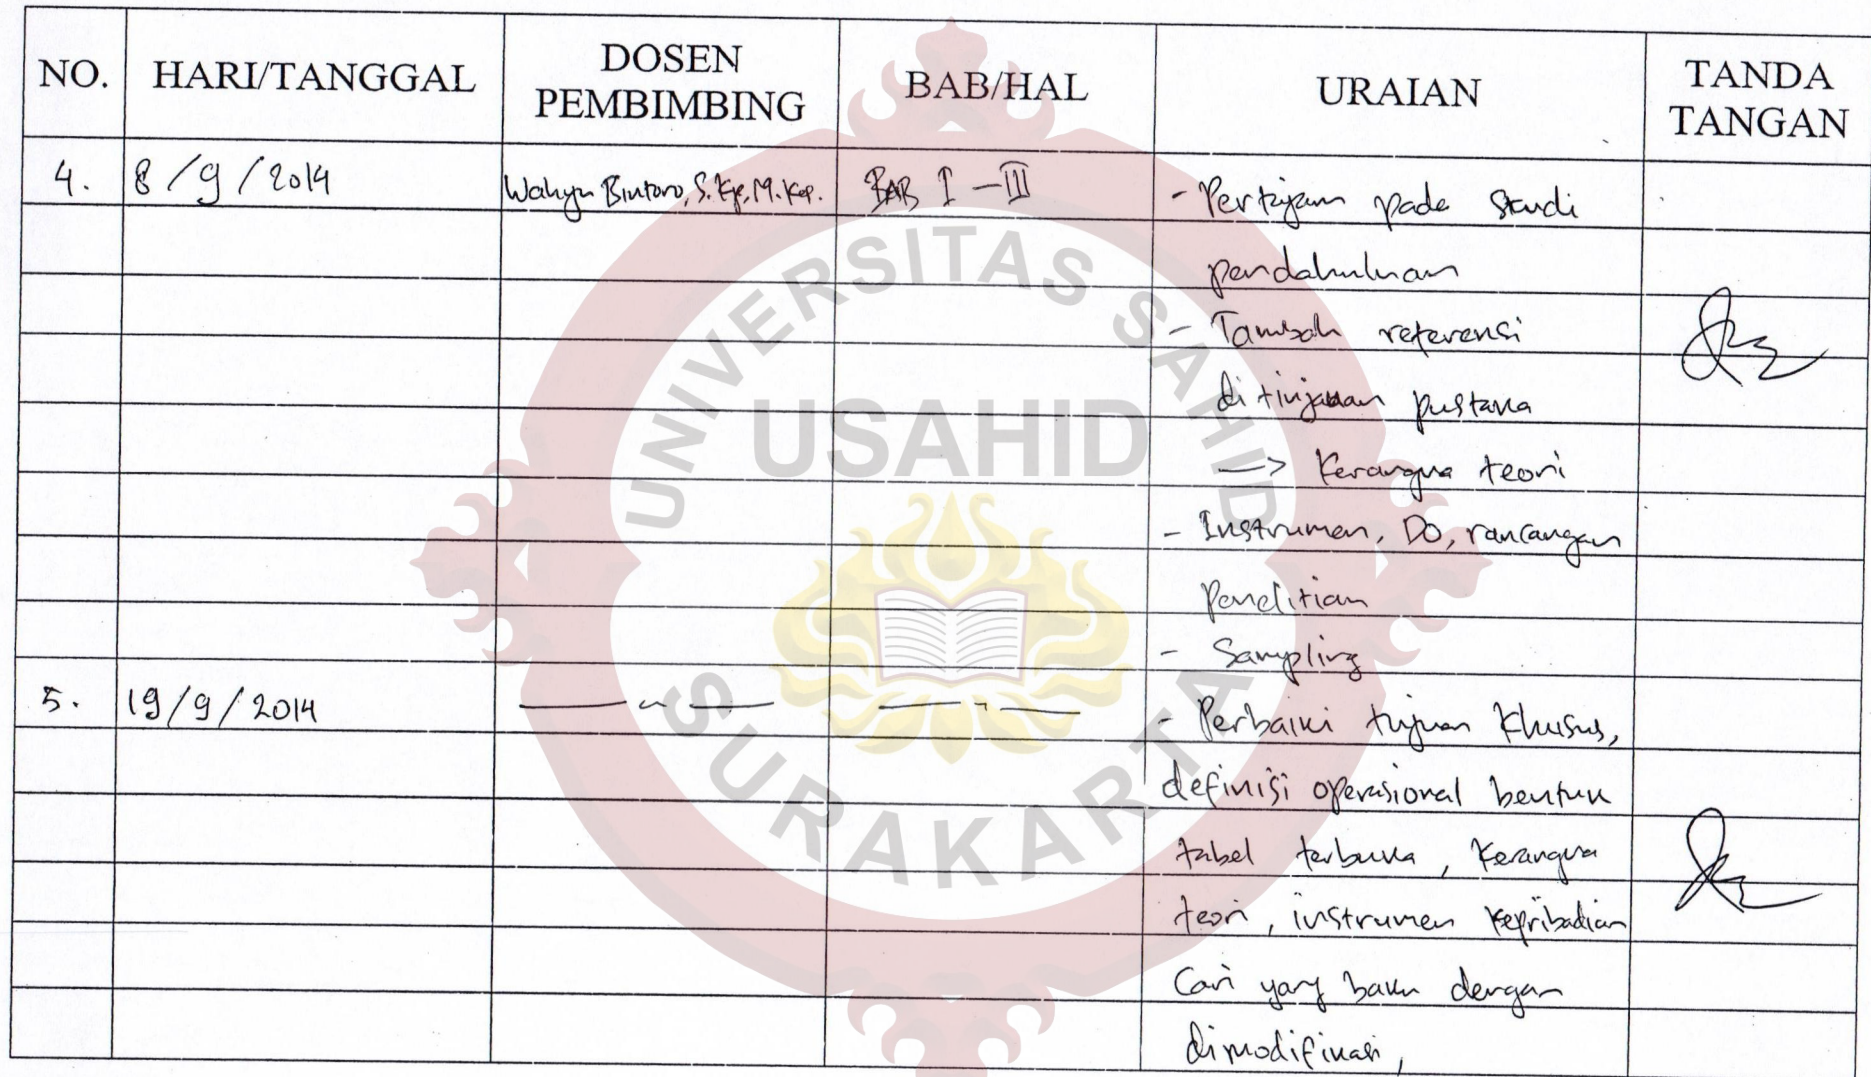 NO. HARI/TANGGAL DOSEN PEMBIMBING BAB/HAL URAIAN TANDA TANGAN
4. 8/9/2014 Wahyu Bintoro, S.Kp, M.Kep. BAB I - III - Pertajam pada studi
pendahuluan
- Tambah referensi
di tinjauan pustaka
-> Kerangka teori
- Instrumen, DO, rancangan
Penelitian
- Sampling
5. 19/9/2014 — " — — " — - Perbaiki tujuan khusus,
definisi operasional bentuk
tabel terbuka, Kerangka
teori, instrumen kepribadian
Cari yang baku dengan
dimodifikasi,
UNIVERSITAS SAHID
USAHID
SURAKARTA